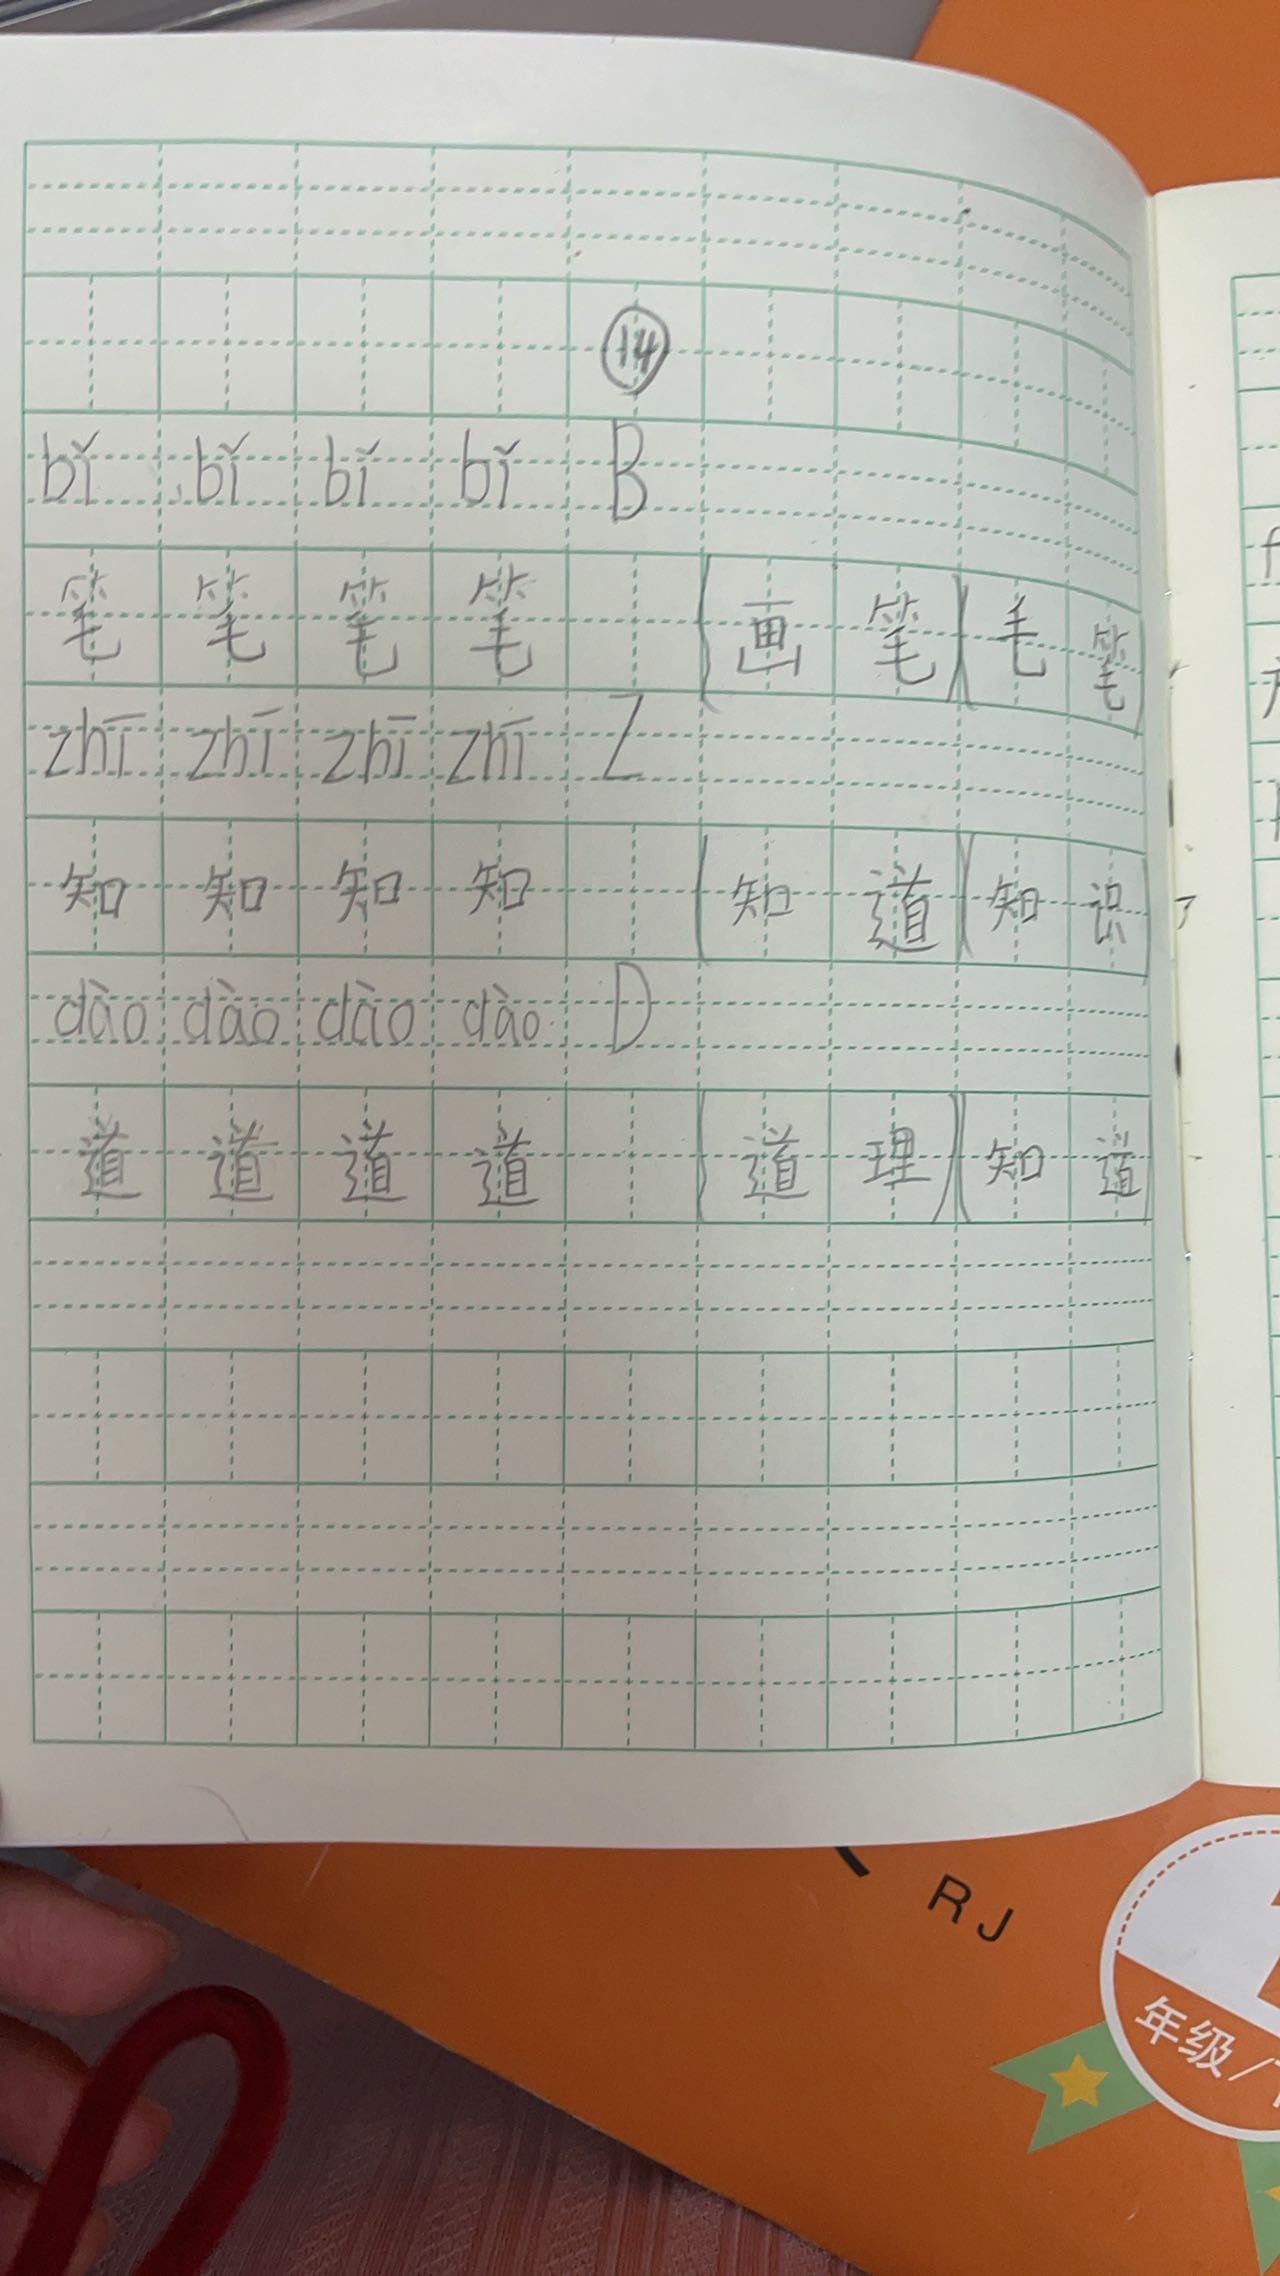 14
bǐ bǐ bǐ bǐ B
笔 笔 笔 笔 (画 笔)(毛 笔)
zhī zhī zhī zhī Z
知 知 知 知 (知 道)(知 识)
dào dào dào dào D
道 道 道 道 (道 理)(知 道)
RJ
年级/